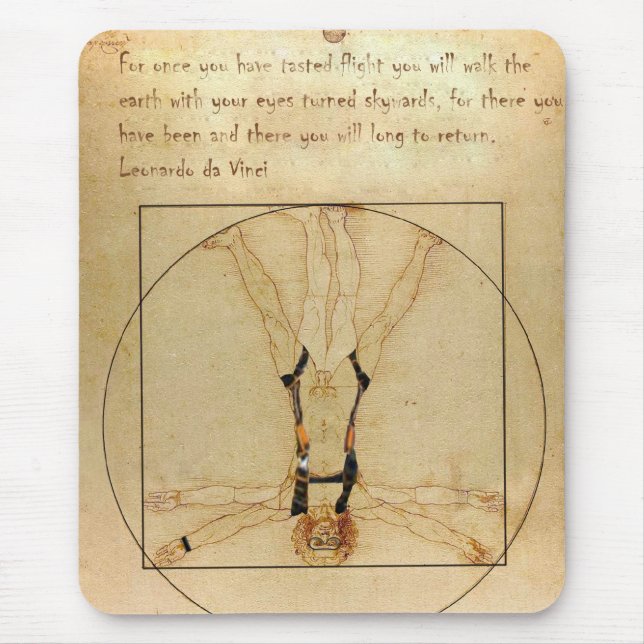 For once you have tasted flight you will walk the
earth with your eyes turned skywards, for there you
have been and there you will long to return.
Leonardo da Vinci